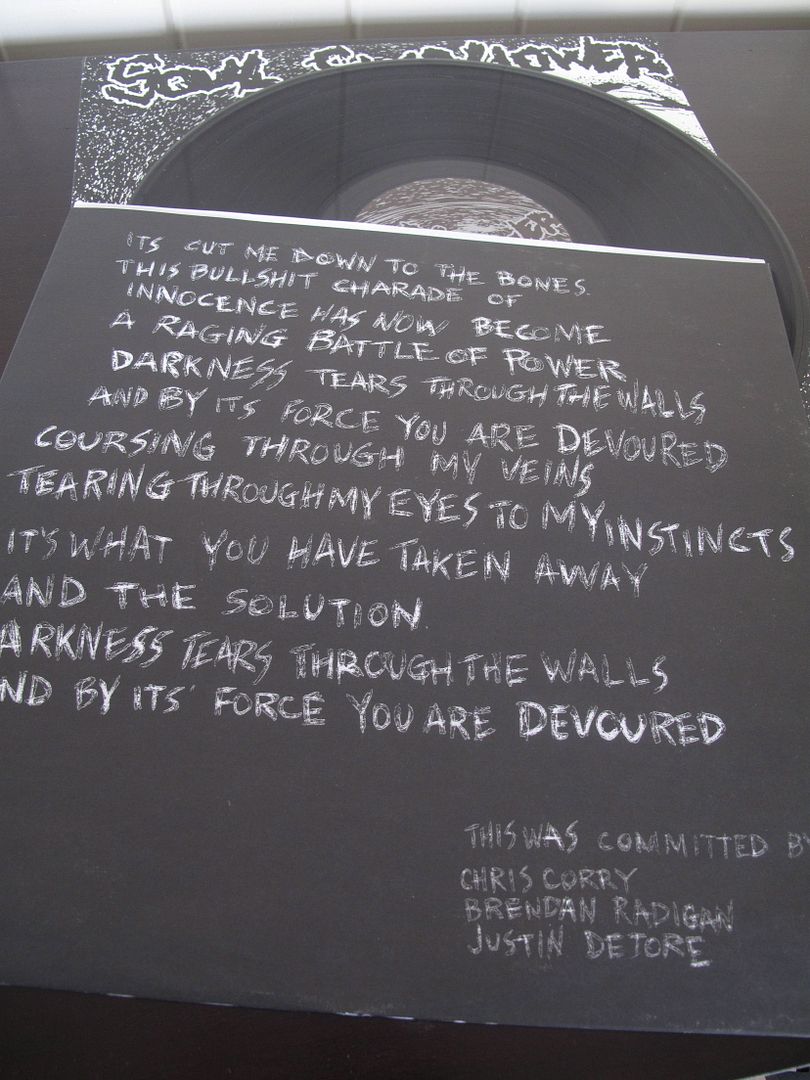 SOUL SWALLOWER
ITS CUT ME DOWN TO THE BONES.
THIS BULLSHIT CHARADE OF
INNOCENCE HAS NOW BECOME
A RAGING BATTLE OF POWER
DARKNESS TEARS THROUGH THE WALLS
AND BY ITS FORCE YOU ARE DEVOURED
COURSING THROUGH MY VEINS
TEARING THROUGH MY EYES TO MY INSTINCTS
IT'S WHAT YOU HAVE TAKEN AWAY
AND THE SOLUTION.
ARKNESS TEARS THROUGH THE WALLS
ND BY ITS' FORCE YOU ARE DEVOURED
THIS WAS COMMITTED BY
CHRIS CORRY
BRENDAN RADIGAN
JUSTIN DETORE